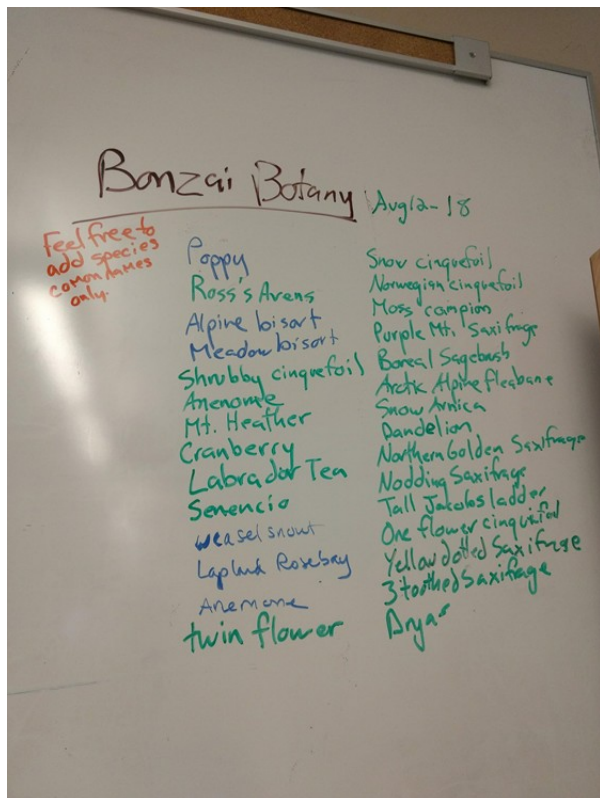 Bonzai Botany
Aug 12-18
Feel free to
add species
comon names
only.
Poppy
Ross's Avens
Alpine bisort
Meadow bisort
Shrubby cinquefoil
Anenome
Mt. Heather
Cranberry
Labrador Tea
Senencio
weasel snout
Lapland Rosebay
Anemone
twin flower
Snow cinquefoil
Norwegian cinquefoil
Moss campion
Purple Mt. Saxifrage
Boreal Sagebush
Arctic Alpine fleabane
Snow Arnica
Dandelion
Northern Golden Saxifrage
Nodding Saxifrage
Tall Jakobs ladder
One flower cinquefoil
Yellow dotted Saxifrage
3 toothed Saxifrage
Dryas